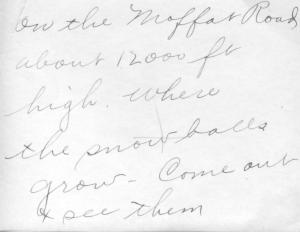 On the Moffat Road
about 12000 ft
high. Where
the snow balls
grow - Come out
& see them